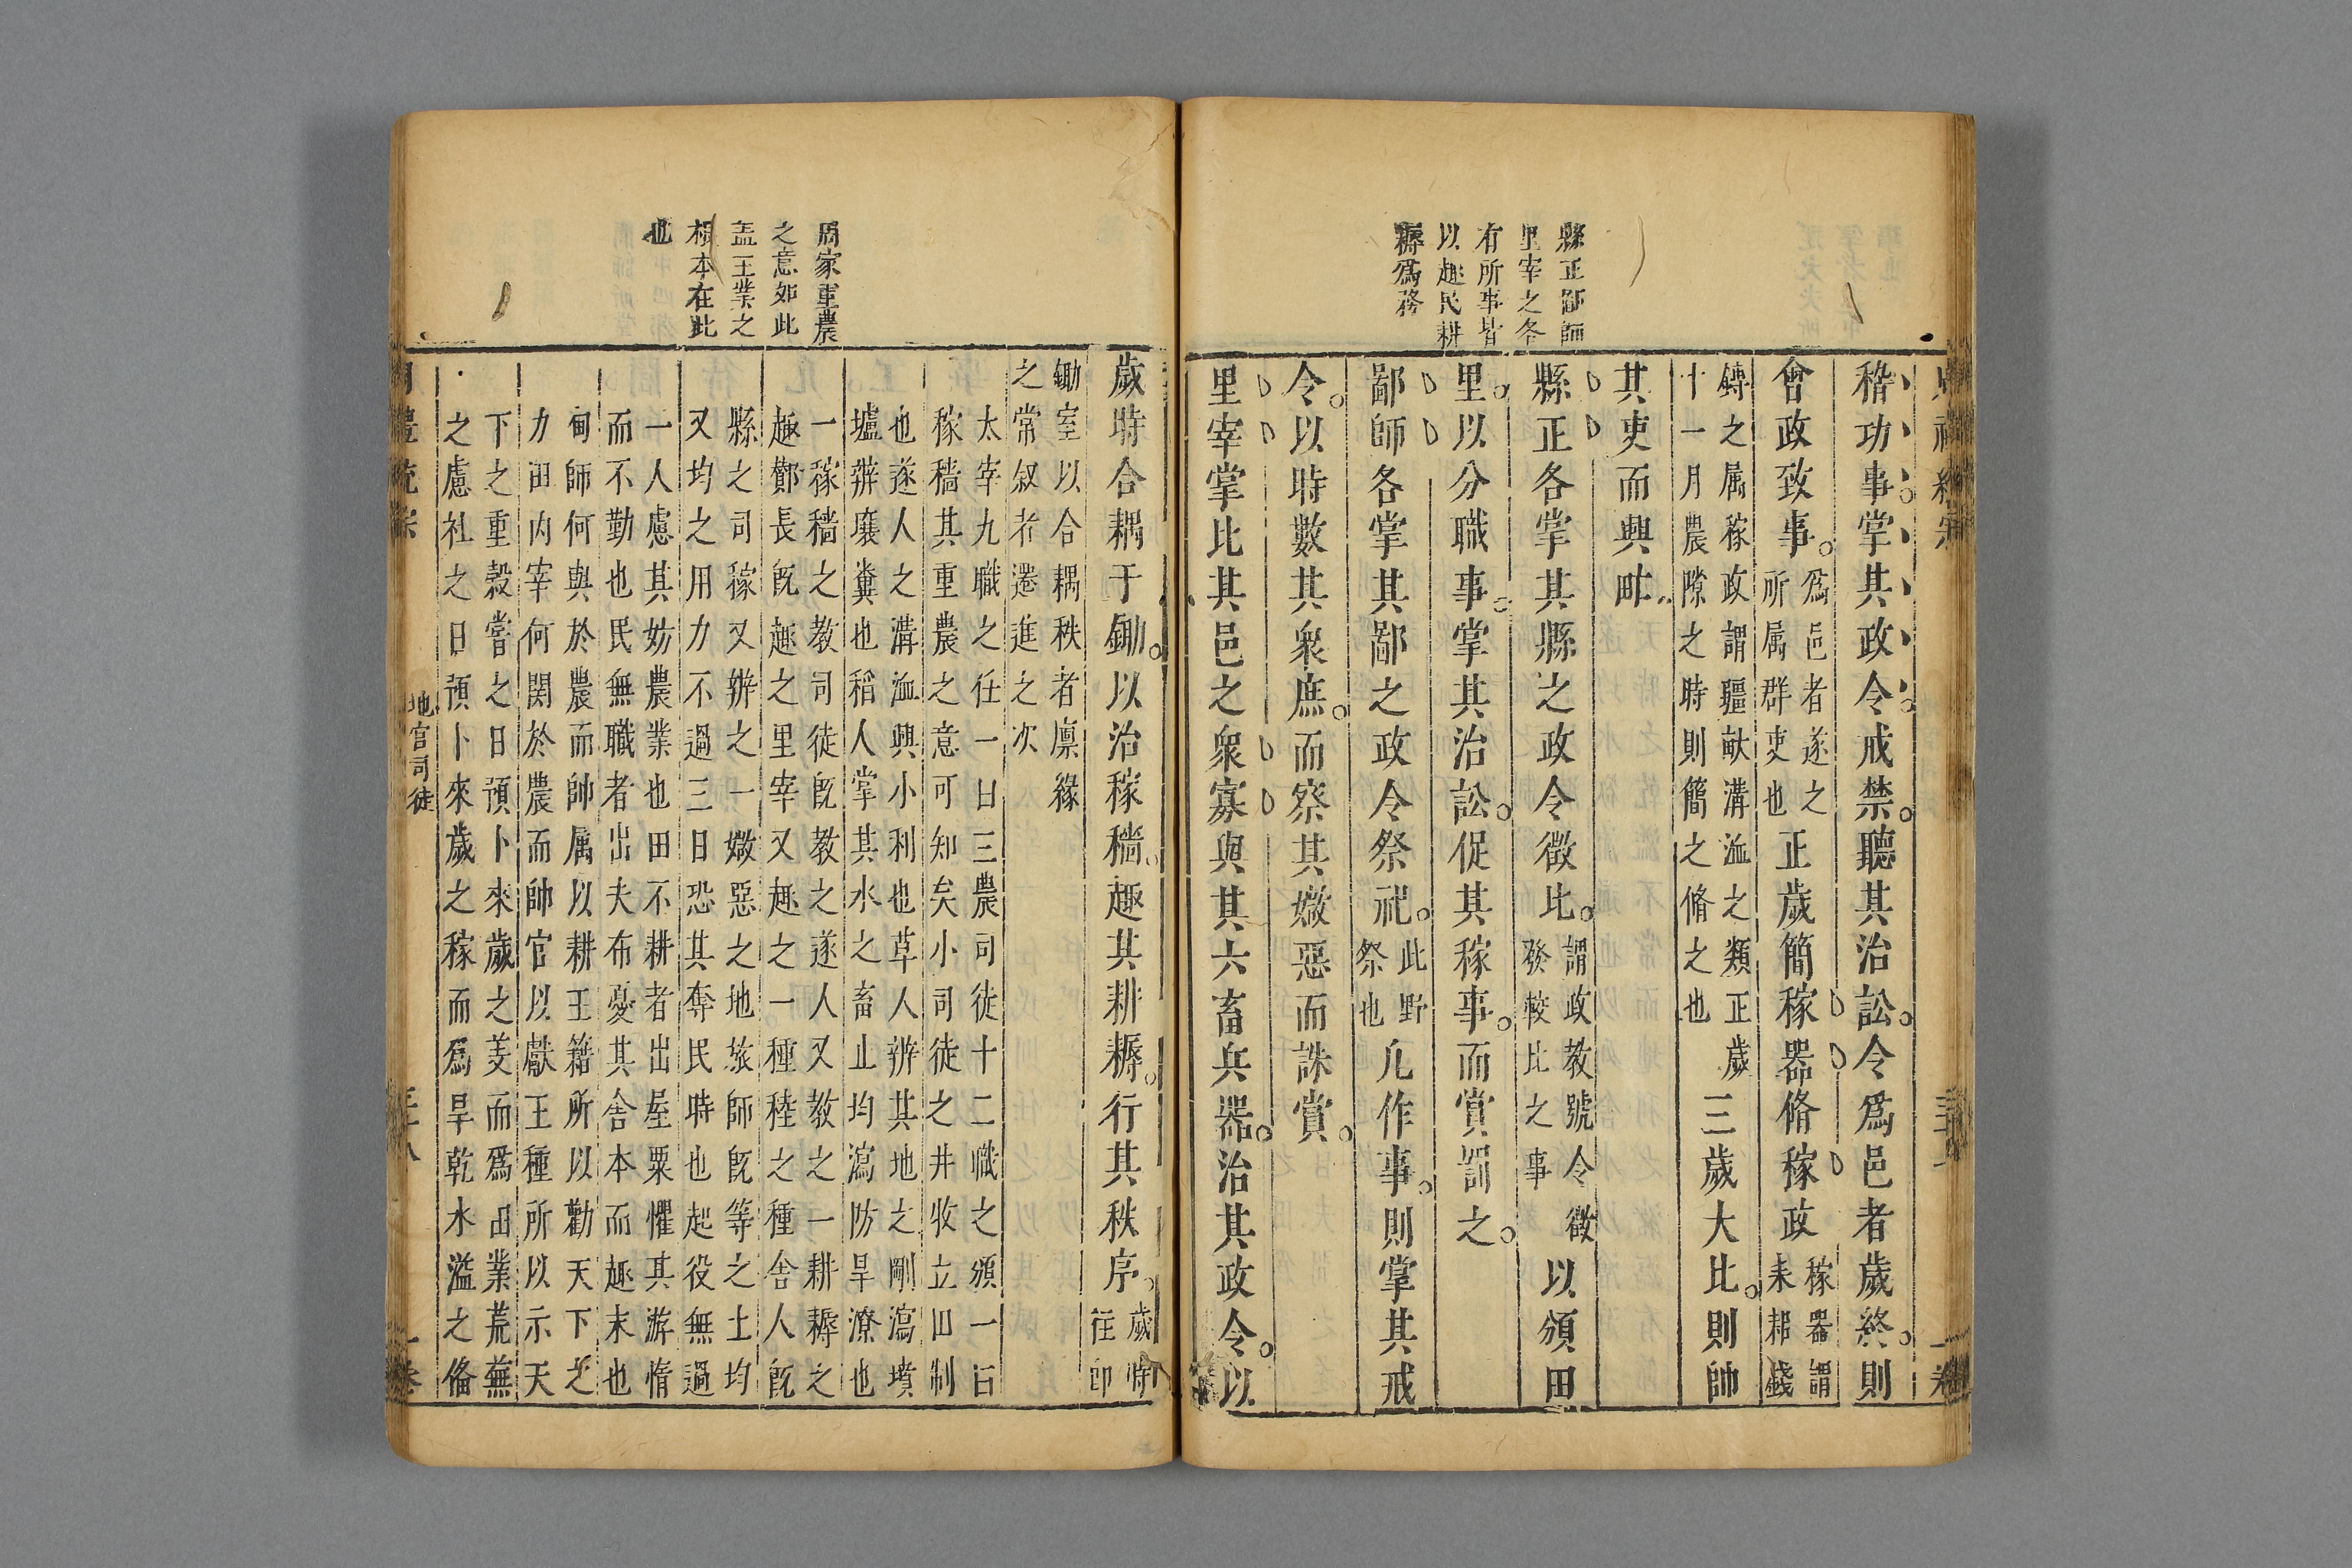 縣正鄙師
里宰之各
有所事皆
以趣民耕
耨爲務
稽功事掌其政令戒禁聽其治訟令爲邑者歲終則
會政致事
爲邑者遂之
所属群吏也
正歲簡稼器脩稼政
稼器謂
耒耜錢
鎛之属稼政謂疆畎溝洫之類正歲
十一月農隙之時則簡之脩之也
三歲大比則帥
其吏而興甿
縣正各掌其縣之政令徵比
謂政教號令徵
發較比之事
以頒田
里以分職事掌其治訟促其稼事而賞罰之
鄙師各掌其鄙之政令祭祀
此野
祭也
凡作事則掌其戒
令以時數其衆庶而察其媺惡而誅賞
里宰掌比其邑之衆寡與其六畜兵器治其政令以
周家重農
之意如此
盖王業之
根本在此
也
歲時合耦于鋤以治稼穡趣其耕耨行其秩序
歲時
徃即
鋤室以合耦秩者廪緣
之常叙者遷進之次
太宰九職之任一曰三農司徒十二職之頒一曰
稼穡其重農之意可知矣小司徒之井牧立田制
也遂人之溝洫興小利也草人辨其地之剛瀉墳
壚辨壤糞也稻人掌其水之畜止均瀉防旱潦也
一稼穡之教司徒旣教之遂人又教之一耕耨之
趣酇長旣趣之里宰又趣之一種稑之種舍人旣
縣之司稼又辨之一媺惡之地旅師旣等之土均
又均之用力不過三日恐其奪民時也起役無過
一人慮其妨農業也田不耕者出屋粟懼其游惰
而不勤也民無職者出夫布憂其舍本而趣末也
甸師何與於農而帥属以耕王籍所以勸天下之
力田内宰何関於農而帥官以獻王種所以示天
下之重穀嘗之日預卜來歲之芟而爲田業荒蕪
之慮社之日預卜來歲之稼而爲旱乾水溢之俻
地官司徒